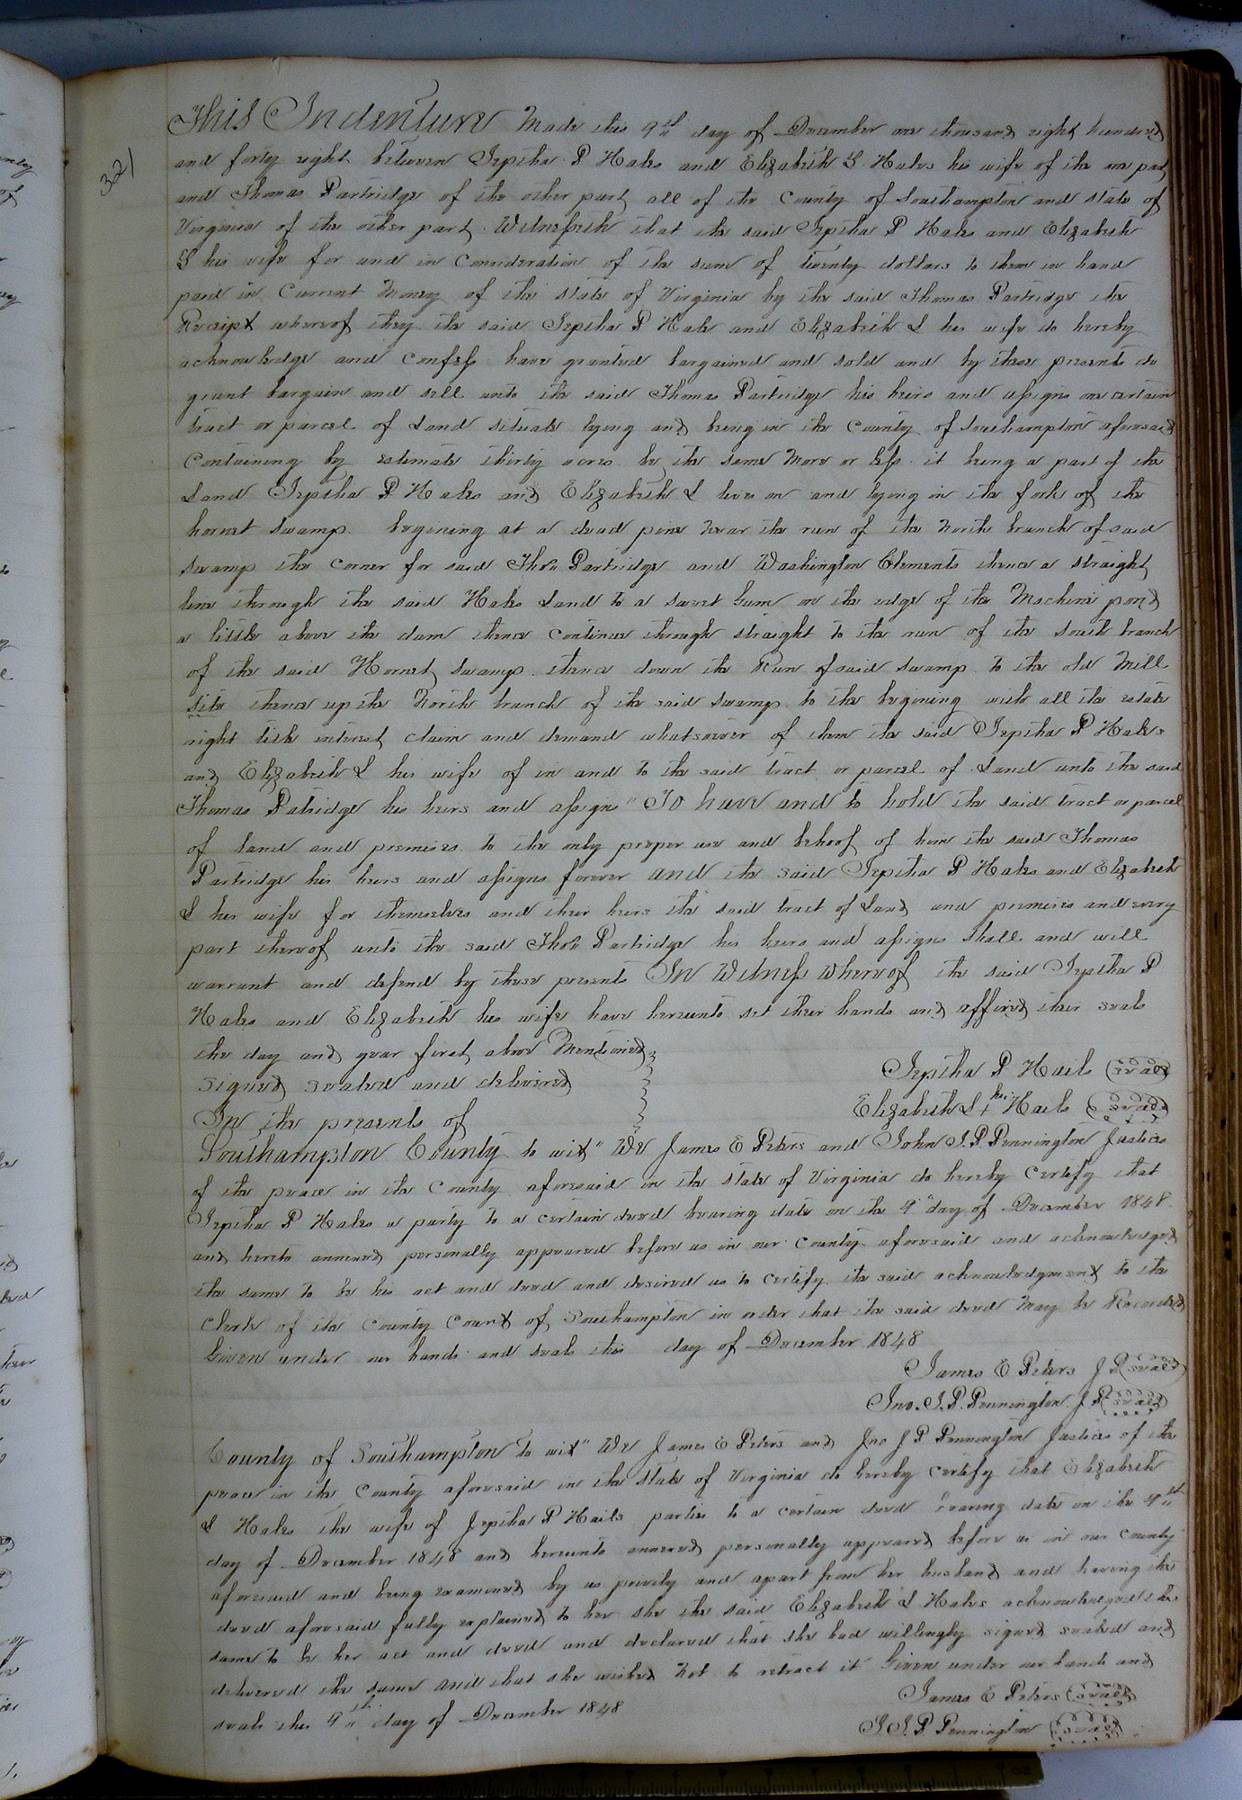 321
This Indenture Made this 9th day of December one thousand eight hundred
and forty eight between Jeptha P Hales and Elizabeth L Hales his wife of the one part
and Thomas Partridge of the other part all of the County of Southampton and state of
Virginia of the other part Witnesseth that the said Jeptha P Hales and Elizabeth
L his wife for and in Consideration of the sum of twenty dollars to them in hand
paid in Current Money of the state of Virginia by the said Thomas Partridge the
Receipt whereof they the said Jeptha P Hales and Elizabeth L his wife do hereby
acknowledge and confess have granted bargained and sold and by these presents do
grant bargain and sell unto the said Thomas Partridge his heirs and assigns one certain
tract or parcel of Land situate lying and being in the County of Southampton aforesaid
Containing by estimate thirty acres be the same More or less it being a part of the
Land Jeptha P Hales and Elizabeth L lives on and lying in the fork of the
hornet swamp begining at a dead pine Near the run of the North branch of said
swamp the corner for said Thos Partridge and Washington Clements thence a straight
line through the said Hales Land to a sweet Gum on the edge of the Machine pond
a little above the dam thence continue through straight to the run of the south branch
of the said Hornet swamp thence down the Run of said swamp to the old Mill
site thence up the North branch of the said swamp to the begining with all the estate
right title interest claim and demand whatsoever of them the said Jeptha P Hales
and Elizabeth L his wife of in and to the said tract or parcel of Land unto the said
Thomas Patridge his heirs and assigns" To have and to hold the said tract or parcel
of land and premises to the only proper use and behoof of him the said Thomas
Partridge his heirs and assigns forever and the said Jeptha P Hales and Elizabeth
L his wife for themselves and their heirs the said tract of Land and premises and every
part thereof unto the said Thos Partridge his heirs and assigns shall and will
warrant and defend by these presents In Witness Whereof the said Jeptha P
Hales and Elizabeth his wife have hereunto set their hands and affixed their seals
the day and year first above Mentioned
Signed sealed and delivered
In the presents of
Jeptha P Hails (seal)
Elizabeth L + Hails (seal)
Southampton County to wit" We James E Peters and John J.P. Pennington Justices
of the peace in the County aforesaid in the state of Virginia do hereby Certify that
Jeptha P Hales a party to a certain deed bearing date on the 9" day of December 1848
and hereto annexed personally appeared before us in our County aforesaid and acknowledged
the same to be his act and deed and desired us to certify the said acknowledgment to the
Clerk of the County Court of Southampton in order that the said deed May be Recorded
Given under our hands and seals this day of December 1848
James E Peters J P (seal)
Jno. J. P. Pennington J P (seal)
County of Southampton to wit" We James E Peters and Jno J P Pennington Justices of the
peace in the County aforesaid in the State of Virginia do hereby certify that Elizabeth
L Hales the wife of Jeptha P Hails parties to a certain deed bearing date on the 9th
day of December 1848 and hereunto annexed personally appeared before us in our county
aforesaid and being examined by us privily and apart from her husband and having the
deed aforesaid fully explained to her she the said Elizabeth L Hales acknowledged the
same to be her act and deed and declared that she had willingly signed sealed and
delivered the same and that she wished Not to retract it Given under our hands and
seals this 9th day of December 1848
James E Peters (seal)
J. J. P Pennington (seal)